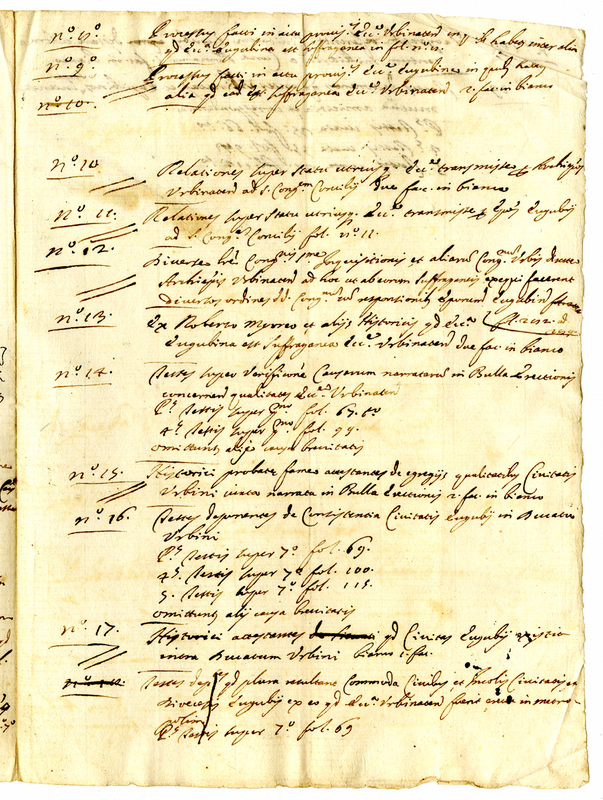 nº. 8º. Processus facti in actu provis. Ecc. Urbinaten in q habet inter alia
qd Ecc. Eugubina est suffraganea in fol. nº. 11.
nº. 9º. Processus facti in actu provis. Ecc. Eugubine in quib habet
nº. 10. alia qd ead. est suffraganea Ecc. Urbinaten 2. fac. in bianco
nº. 10 Relationes super statu utriusq. Ecc. transmisse Archiepus
Urbinaten ad S. Cong.em Concilij due fac. in bianco
nº. 11. Relationes super statu utriusq. Ecc. transmisse Epus Eugubij
ad S. Cong. Concilij fol. nº. 11.
nº. 12. Diverse Inquisitionis et aliarum Cong. Urbis
Archiepis Urbinaten ad hoc ut ab eorum suffraganeis exequi facerent
diversos ordines d. Cong. cum responsionib. eporum Eugubin
nº. 13 Ex Roberto et alijs Historicis qd Ecc.
Eugubina est suffraganea Ecc. Urbinaten due fac. in bianco
nº. 14 Testes super verificone causarum narratarum in Bulla Erectionis
concernen qualitates Ecc. Urbinaten
P.s Testis super fol. 69.
4. Testis super fol. 95.
omittunt. alij causa brevitatis
nº. 15. Historici probate fame attestantes de egregijs qualitatibus Civitatis
Urbini iuxta narrata in Bulla Erectionis 2. fac. in bianco
nº. 16 Testes deponentes de Consistentia Civitatis Eugubij in Ducatu
Urbini
P.s Testis super 7º fol. 69.
4. Testis super 7º fol. 100.
5. Testis super 7º fol. 115.
omittunt. alij causa brevitatis
nº. 17. Historici attestantes qd Civitas Eugubij existit
intra Ducatum Urbini bianco 2. fac.
Testes qd plura resultent Commoda Civibus et Incolis Civitatis et
Diocesis Eugubij ex eo qd Ecc. Urbinaten fuerit erecta in metro-
polim
P.s Testis super 7º fol. 69